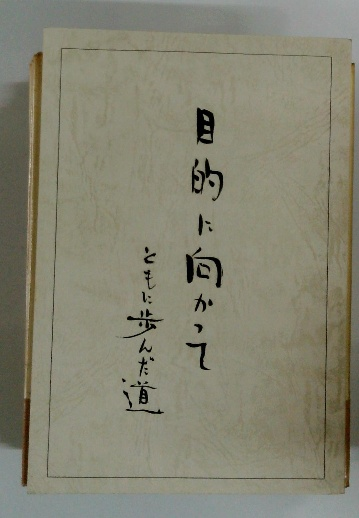 目的に向かって
ともに歩んだ道